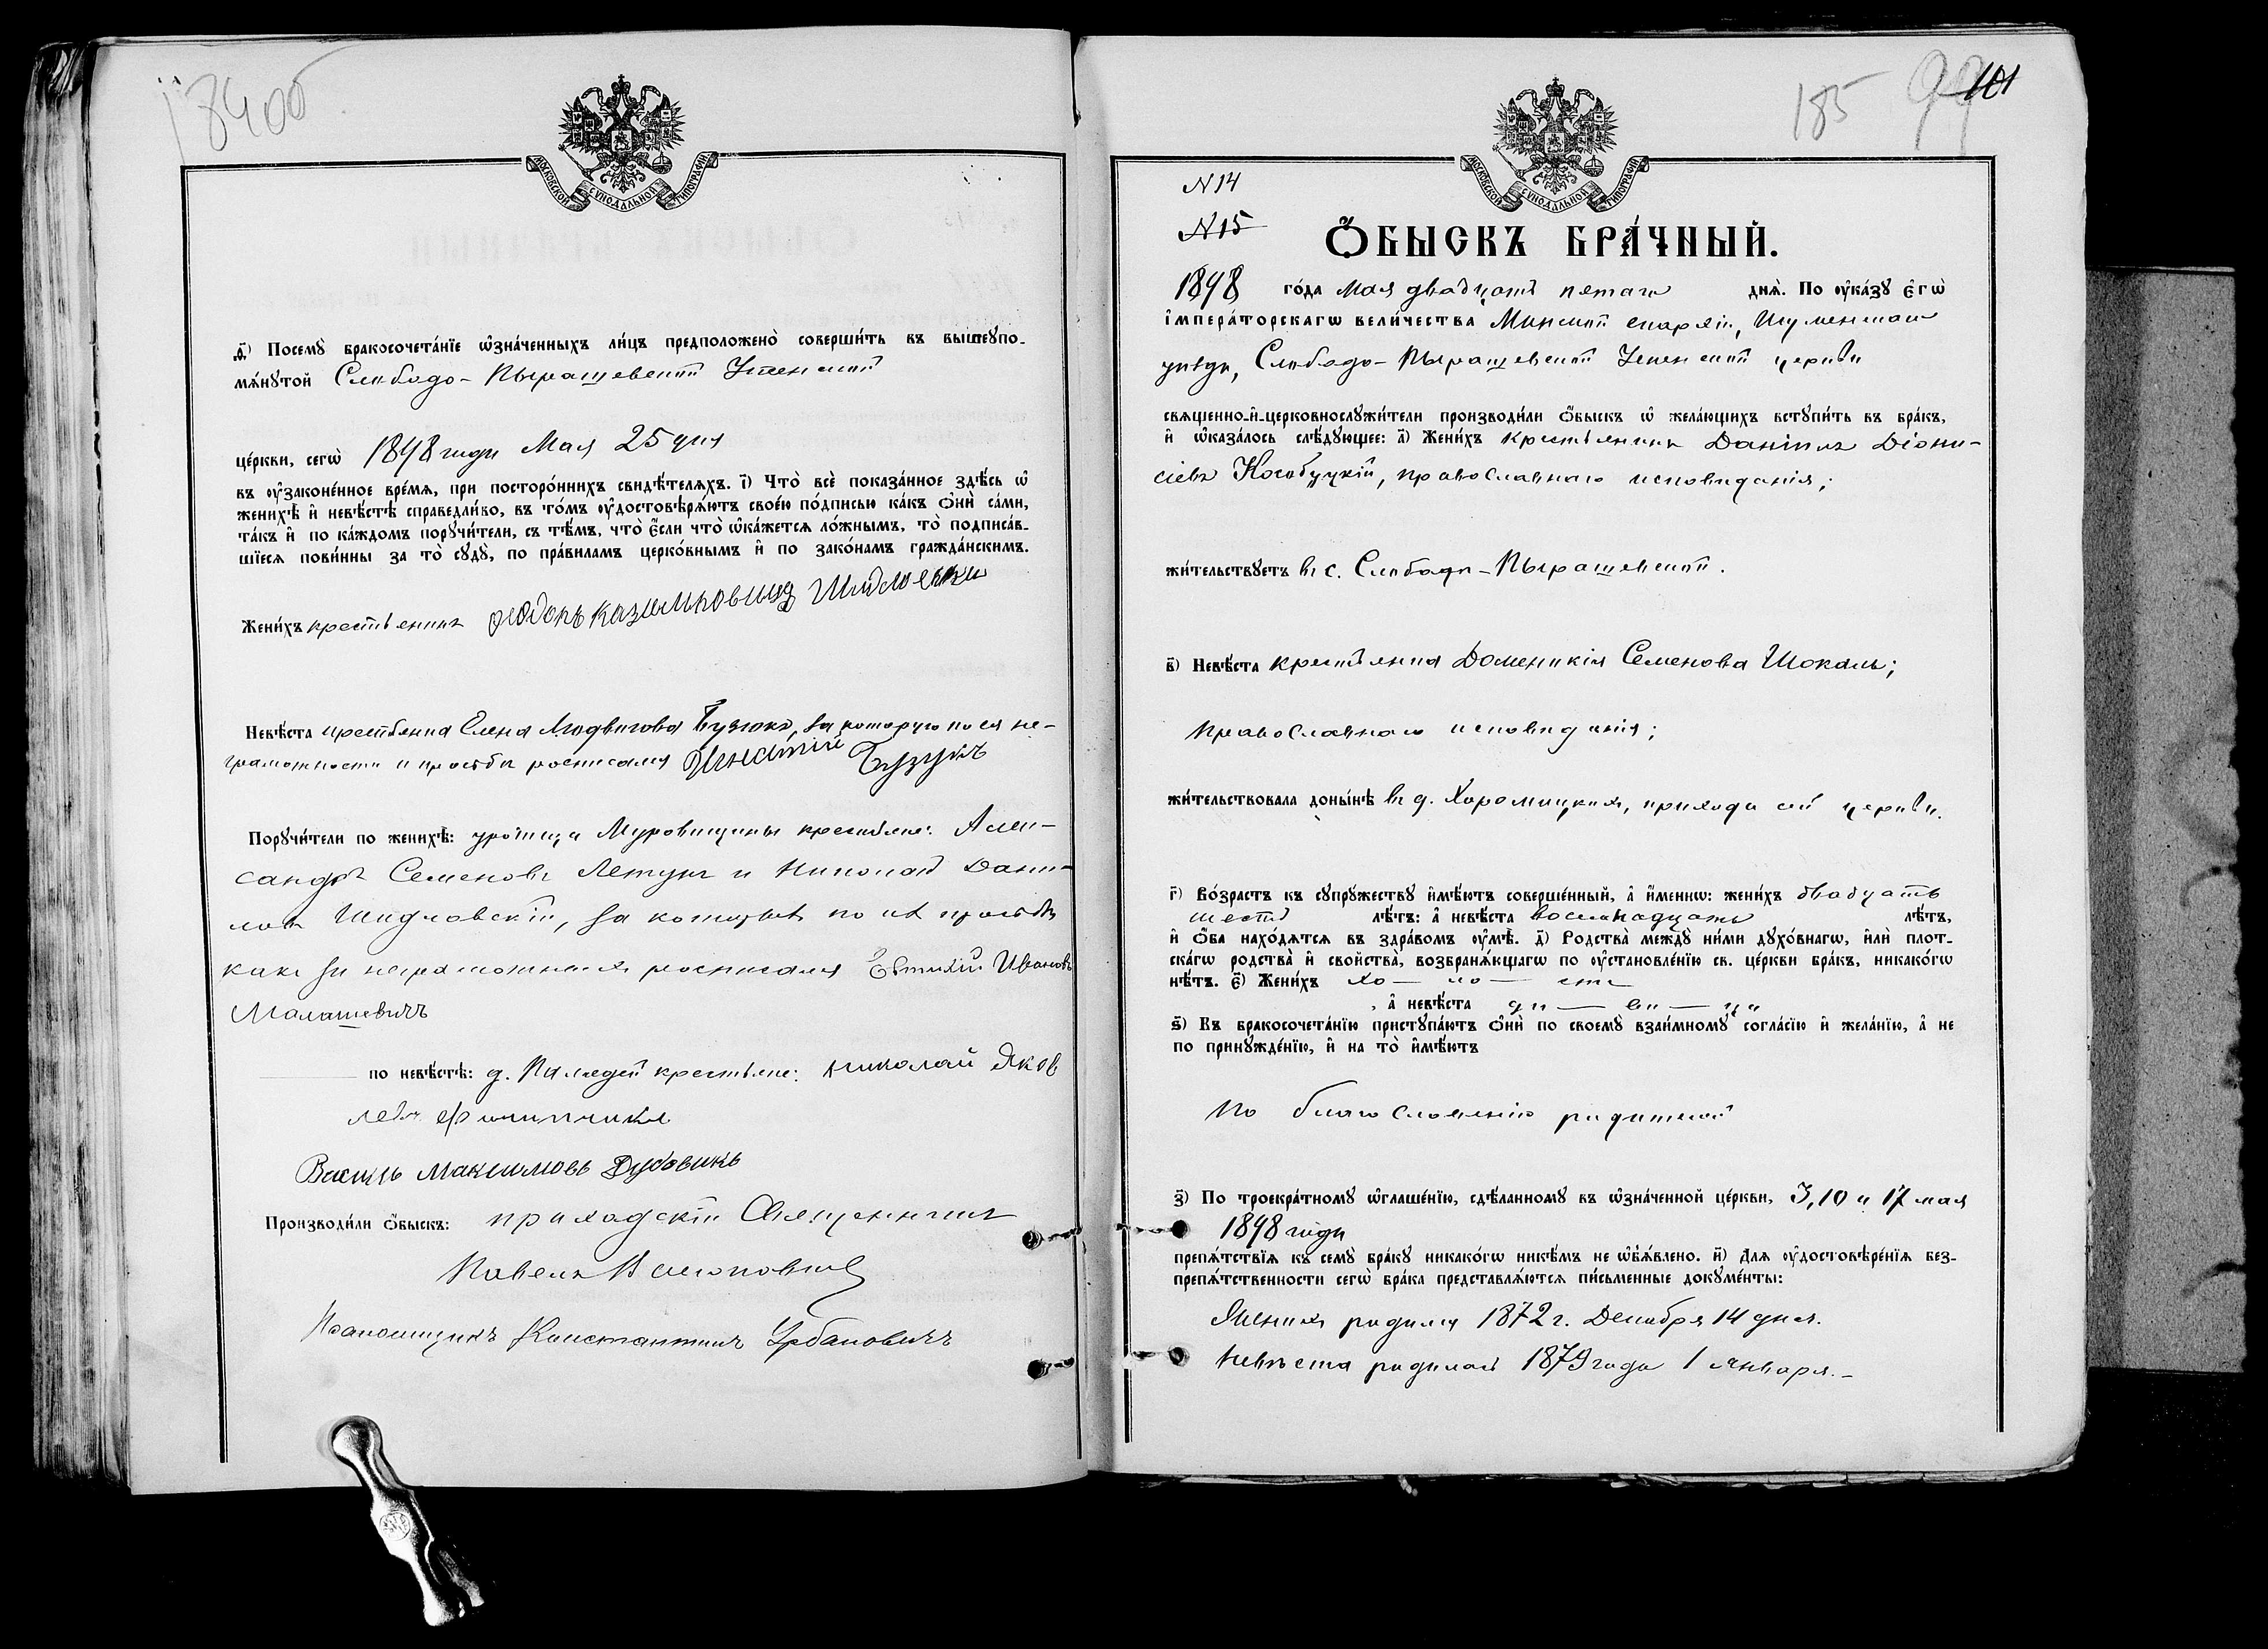 184об
МОСКОВСКОЙ СѴНОДАЛЬНОЙ ТИПОГРАФІИ
Посемꙋ̀ бракосочета́нїе ѡ҆зна́ченныхъ ли́цъ предположено̀ соверши́ть въ вышеꙋпо-
мѧ́нꙋтой Слободо-Пырашевской Успенской
це́ркви, сегѡ̀ 1898 года Мая 25 дня
въ ᲂу҆законе́нное вре́мѧ, при посторо́ннихъ свидѣ́телѧхъ. і҃) Что̀ всѐ показа́нное здѣ́сь ѡ҆
женихѣ̀ и҆ невѣ́стѣ справедли́во, въ то́мъ ᲂу҆достовѣрѧ́ютъ свое́ю по́дписью ка́къ ѻ҆нѝ са́ми,
та́къ и҆ по ка́ждомъ порꙋчи́тели, съ тѣ́мъ, что̀ є҆́сли что̀ ѡ҆ка́жетсѧ ло́жнымъ, то̀ подписа́в-
шїесѧ пови́нны за то̀ сꙋдꙋ̀, по пра́виламъ церко́внымъ и҆ по зако́намъ гражда́нскимъ.
Жени́хъ крестьянинъ Казимировичъ Шидловски
Невѣ́ста крестьянка Елена Людвигова Бузукъ, за которую по ея не-
грамотности и просьбѣ росписался Игнатій Бузукъ
Порꙋчи́тели по женихѣ̀: урочища Муровщины крестьяне: Алек-
сандръ Семеновъ Летунъ и Николай Дани-
ловъ Шидловскій, за которыхъ по ихъ просьбѣ
какъ за неграмотныхъ росписался Евтихій Ивановъ
Малашевичъ
по невѣ́стѣ: д. крестьяне: Николай Яков
левъ Филипчикъ
Василь Максимовъ Дубовикъ
Производи́ли ѻ҆́быскъ: приходскій Священникъ
Павелъ
Псаломщикъ Константинъ Урбановичъ
185 99 101
МОСКОВСКОЙ СѴНОДАЛЬНОЙ ТИПОГРАФІИ
N 14
N 15
Ѻ҆́БЫСКЪ БРА́ЧНЫЙ.
1898 го́да Мая двадцать пятаго днѧ̀. По ᲂу҆ка́зꙋ є҆гѡ̀
і҆мпера́торскагѡ вели́чества Минской епархіи, Игуменскаго
уѣзда, Слободо-Пырашевской Успенской церкви
свѧщенно-и҆-церковнослꙋжи́тели производи́ли ѻ҆́быскъ ѡ҆ жела́ющихъ встꙋпи́ть въ бра́къ,
и҆ ѡ҆каза́лось слѣ́дꙋющее: а҃) Жени́хъ крестьянинъ Даніилъ Діони-
сіевъ Кособуцкій, православнаго исповѣданія;
жи́тельствꙋетъ въ с. Слободѣ-Пырашевской.
в҃) Невѣ́ста крестьянка Доменикія Семенова Шокаль;
православнаго исповѣданія;
жи́тельствовала доны́нѣ въ д. Хоромицкихъ, прихода сей церкви.
г҃) Во́зрастъ къ сꙋпрꙋ́жествꙋ и҆мѣ́ютъ соверше́нный, а҆ и҆́меннѡ: жени́хъ двадцать
шесть лѣ́тъ: а҆ невѣ́ста восемнадцать лѣ́тъ,
и҆ ѻ҆́ба нахо́дѧтсѧ въ здра́вомъ ᲂу҆мѣ̀. д҃) Родства̀ междꙋ̀ ни́ми дꙋхо́внагѡ, и҆лѝ плот-
ска́гѡ родства̀ и҆ сво́йства̀, возбранѧ́ющагѡ по ᲂу҆становле́нїю св. це́ркви бра́къ, никако́гѡ
нѣ́тъ. є҃) Жени́хъ хо — ло — стъ
, а҆ невѣ́ста дѣ — ви — ца
ѕ҃) Къ бракосочета́нїю пристꙋпа́ютъ ѻ҆нѝ по своемꙋ̀ взаи́мномꙋ согла́сїю и҆ жела́нїю, а҆ не
по принꙋжде́нїю, и҆ на то̀ и҆мѣ́ютъ
по благословенію родителей
з҃) По троекра́тномꙋ ѡ҆глаше́нїю, сдѣ́ланномꙋ въ ѡ҆зна́ченной це́ркви, 3, 10 и 17 мая
1898 года
препѧ́тствїѧ къ семꙋ̀ бра́кꙋ никако́гѡ никѣ́мъ не ѡ҆б̾ѧ́влено. и҃) Для ᲂу҆достовѣре́нїѧ без-
препѧ́тственности сегѡ̀ бра́ка представлѧ́ютсѧ пи́сьменные докꙋме́нты:
Женихъ родился 1872 г. Декабря 14 дня.
Невѣста родилась 1879 года 1 января.